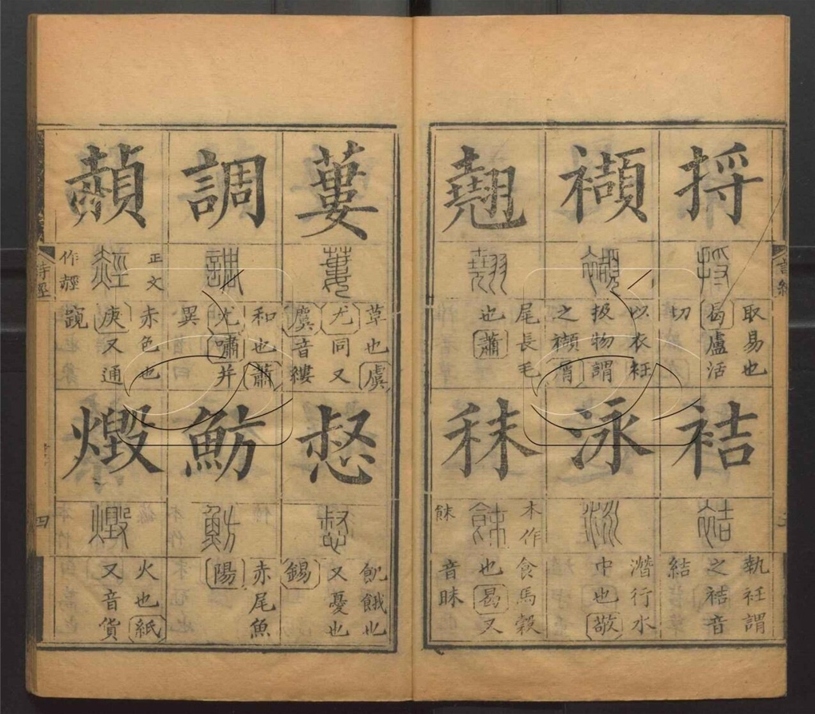 捋
捋
取易也
曷盧活
切
袺
袺
執衽謂
之袺音
結
襭
襭
以衣衽
扱物謂
之襭屑
泳
泳
潛行水
中也敬
翹
翹
尾長毛
也蕭
秣
本作
䬴
食馬穀
也曷又
音昧
蔞
蔞
草也虞
尤同又
虞音縷
惄
惄
飢餓也
又憂也
錫
調
調
和也蕭
尤嘯幷
異
魴
魴
赤尾魚
陽
赬
正文
作䞓
赤色也
庚又通
燬
燬
火也紙
又音貨
詩經
四